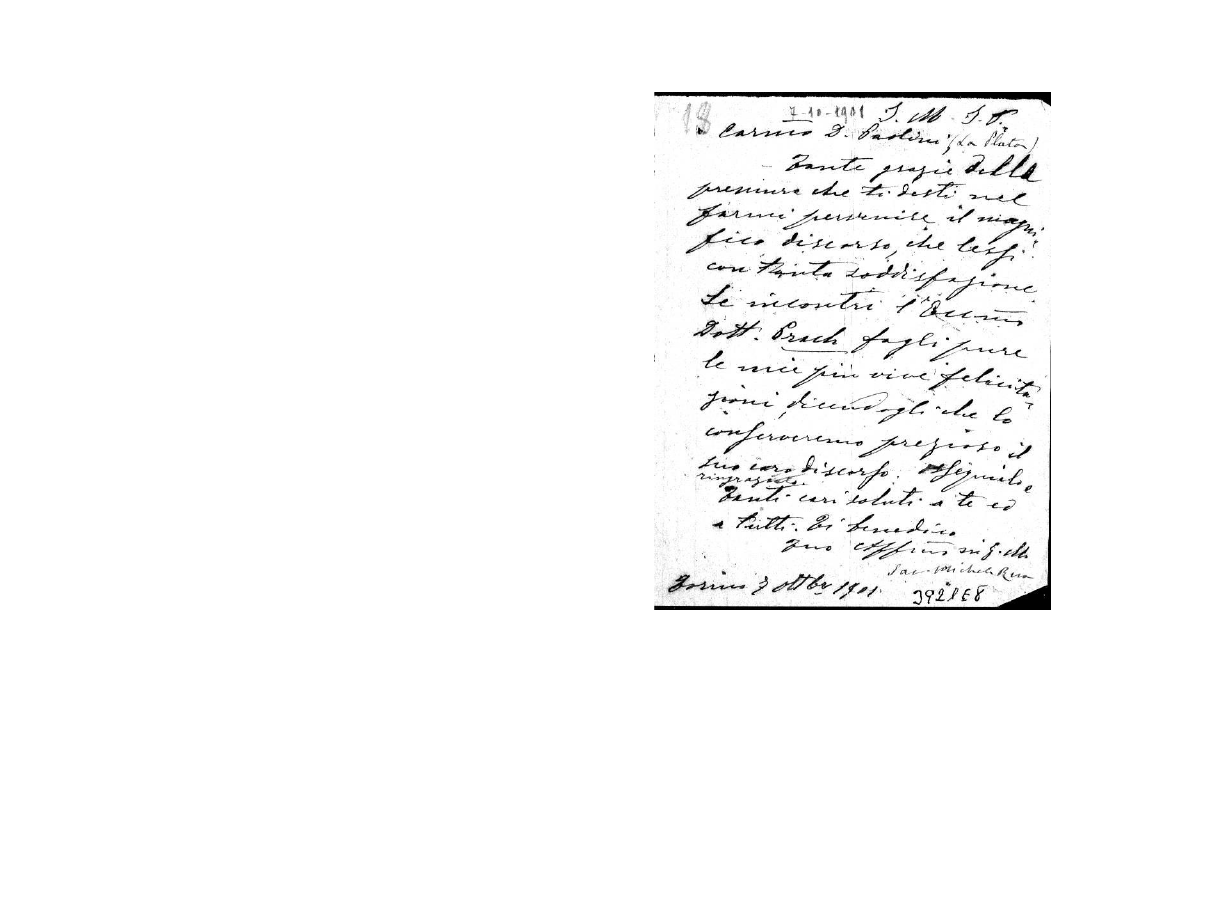 18
7-10-1901 J. M. J. P.
Carmo D. Paolini, (La Plata)
Tante grazie della
premura che ti desti nel
farmi pervenire il magni-
fico discorso, che lessi
con tanta soddisfazione.
Se incontri l'
Dott. fagli pure
le mie più vive felicita-
zioni, dicendogli che lo
conserveremo prezioso il
suo caro discorso. Ossequialo e
ringrazialo.
Tanti cari saluti a te ed
a tutti. Ti benedico
Tuo Affmo in G. M.
Sac. Michele Rua
Torino 7 ottbre 1901.